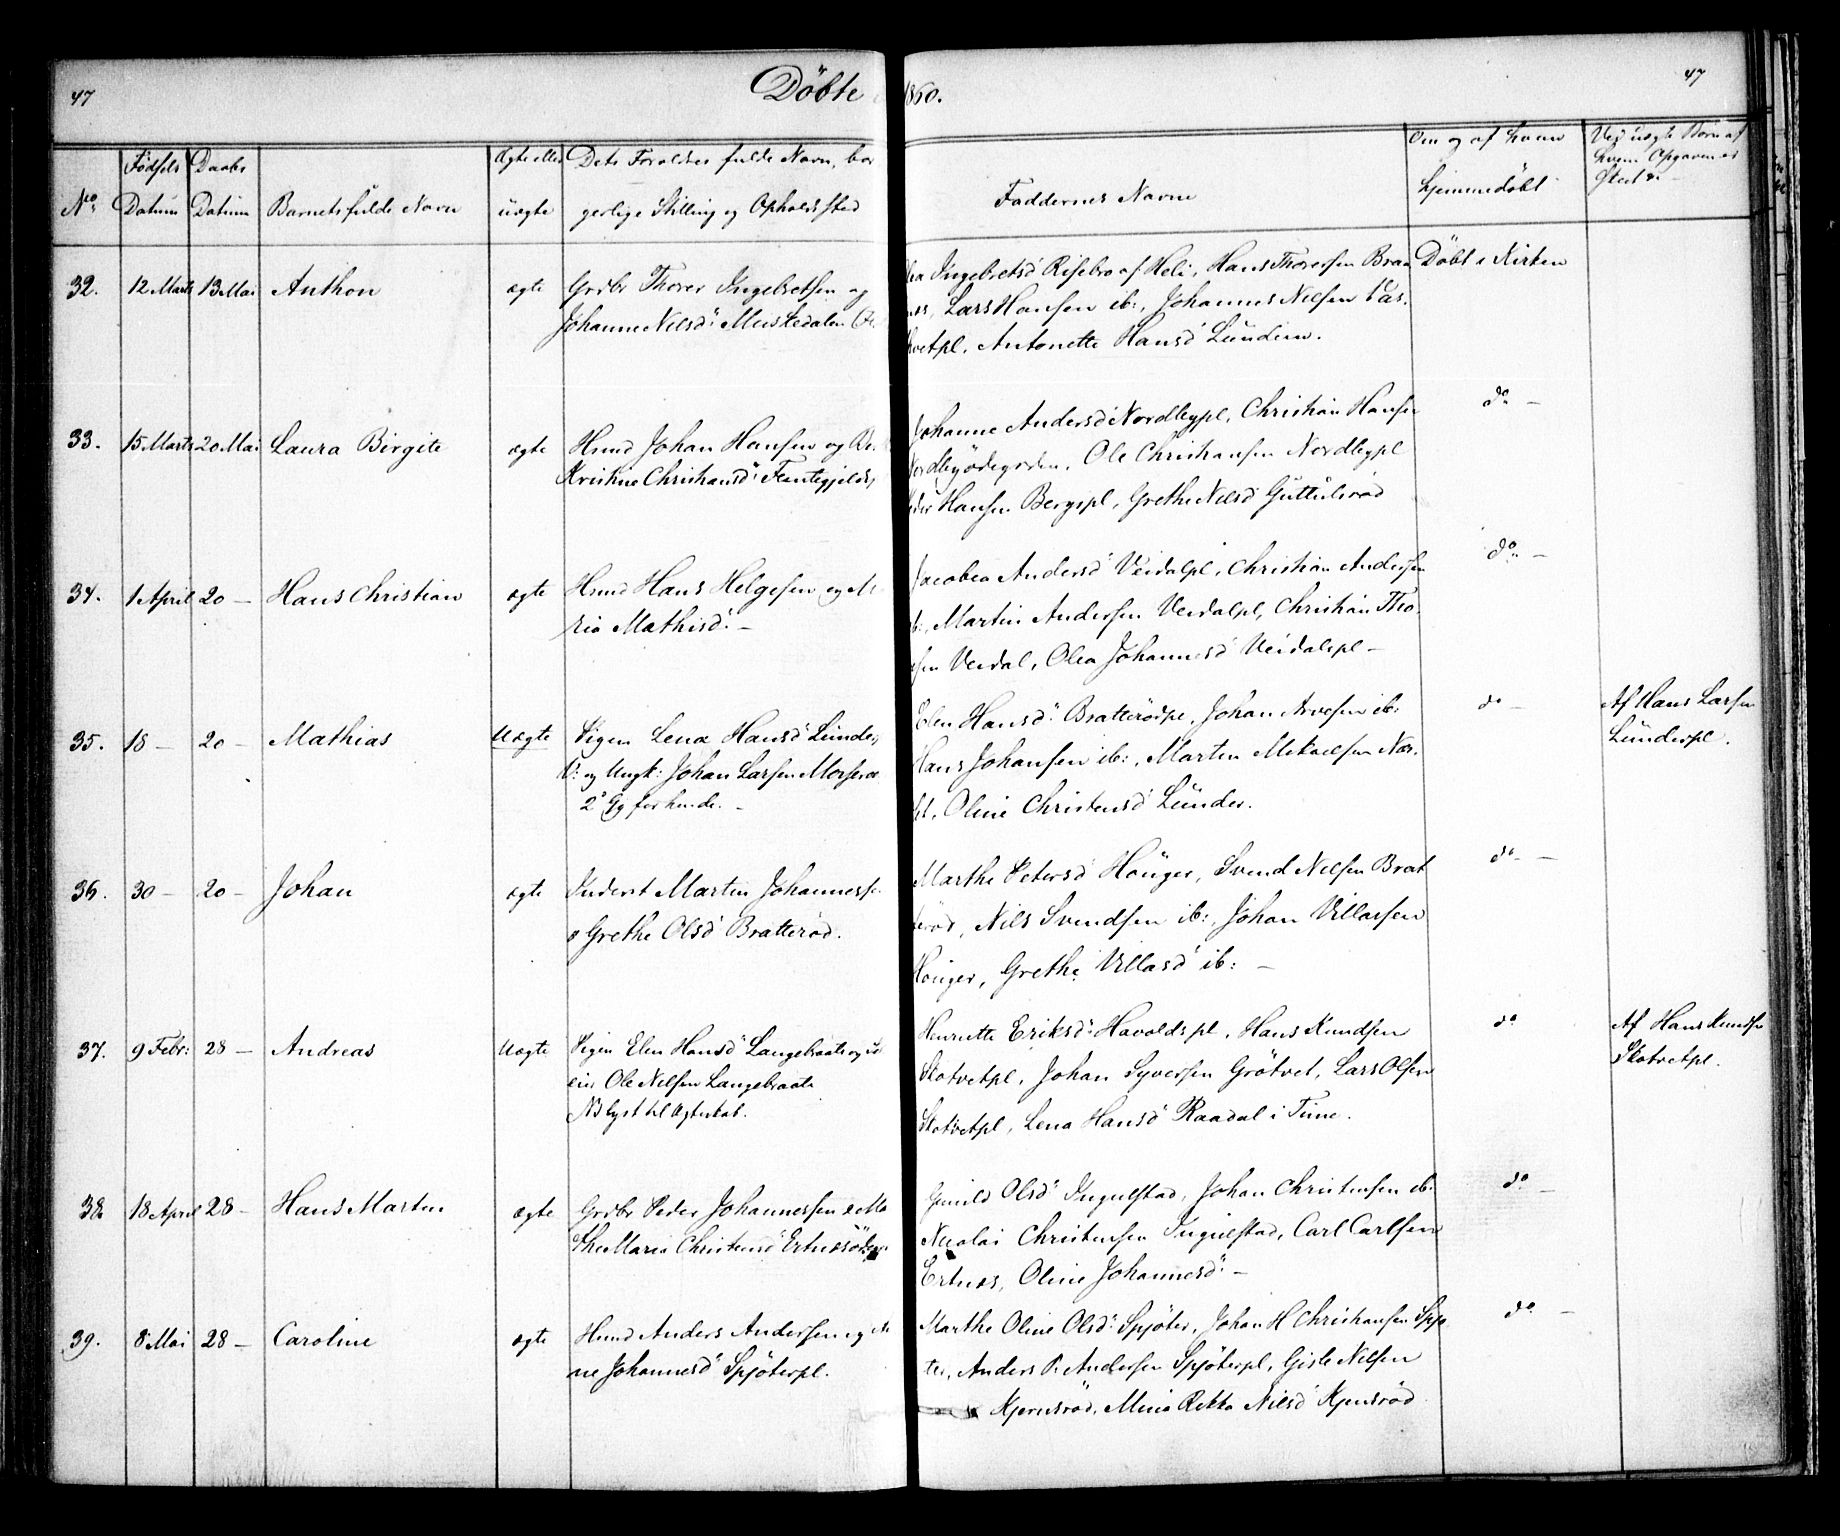 47
Döbte 1860.
47
No.
Födsels Datum
Daabs Datum
Barnets fulde Navn
Ægte eller uægte
Dets Forældres fulde Navn, bor
gerlige Stilling og Opholdssted
Faddernes Navne
Om og af hvem
hjemmedöbt
Ved uægte Börn af
hvem Opgaven er
skeet &c.
32. 12 Marts 13 Mai Anthon ægte Grdbr Thorer Ingebretsen og
Johanne Nilsd: Mustedalen
Ingebretsd Risebro af Heli, Hans Thoresen Braa
næs, Lars Hansen ib:, Johannes Nilsen Aas.
Antonette Hansd Lundem.
Döbt i Kirken
33. 15 Marts 20 Mai Laura Birgite ægte Hmd Johan Hansen og Be.
Kristine Christiansd:
Johanne Andersd Nordbypl, Christian Hansen
Nordbyödegorden, Ole Christiansen Nordbypl
Hansen Bergspl, Grethe Nilsd Guttulsröd
do —
34. 1 April 20 — Hans Christian ægte Hmd Hans Helgesen og M
ria Mathisd: —
Jacobea Andersd Veidalpl, Christian Andersen
ib:, Martin Andersen Veidalpl, Christian Tho.
sen Veidal, Olea Johannesd Veidalspl —
do —
35. 18 — 20 — Mathias Uægte Pigen Lena Hansd Lunder,
U: og Ungk: Johan Larsen
2' Gg for hende. —
Elen Hansd: Bratterödpe, Johan Arvesen ib:
Hans Johansen ib:, Martin Mikaelsen Nor.
Oline Christensd Lunder.
do —
Af Hans Larsen
Lunderpl.
36. 30 — 20 — Johan ægte Inderst Martin Johannesse
o Grethe Olsd Bratteröd.
Marthe Petersd Hönger, Svend Nilsen Brat
teröd, Nils Svendsen ib:, Johan Villassen
Hönger, Grethe Villasd ib: —
do —
37. 9 Febr: 28 — Andreas Uægte Pigen Elen Hansd Langebraate og
Ole Nilsen Langebraate
NB lyst til Ægteskab.
Henriette Eriksd: Havoldspl, Hans Knudsen
Skotvetpl, Johan Syversen Grötvet, Lars Olsen
Skotvetpl, Lena Hansd Raadal i Tune.
do
Af Hans Knudse
Skotvetpl.
38. 18 April 28 — Hans Martin ægte Grdbr Peder Johannessen & Ma
the Maria Christensd
Gunild Olsd: Ingulstad, Johan Christensen ib:
Nicolai Christensen Ingulstad, Carl Carlsen
Ertnes, Oline Johannesd: —
do —
39. 8 Mai 28 — Caroline ægte Hmd Anders Andersen og M
ne Johannesd Spjöterpl.
Marthe Oline Olsd: Spjöter, Johan H Christiansen Spjö
ter, Anders P. Andersen Spjöterpl, Gisle Nilsen
Kjernsröd, Mina Rikka Nilsd Kjensröd
do —